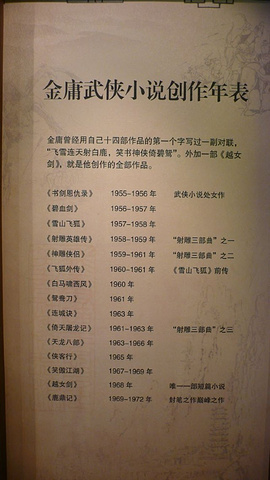 金庸武侠小说创作年表
金庸曾经用自己十四部作品的第一个字写过一副对联,
“飞雪连天射白鹿,笑书神侠倚碧鸳”。外加一部《越女
剑》,就是他创作的全部作品。
《书剑恩仇录》 1955-1956 年 武侠小说处女作
《碧血剑》 1956-1957 年
《雪山飞狐》 1957-1958 年
《射雕英雄传》 1958-1959 年 “射雕三部曲”之一
《神雕侠侣》 1959-1961 年 “射雕三部曲”之二
《飞狐外传》 1960-1961 年 《雪山飞狐》前传
《白马啸西风》 1960 年
《鸳鸯刀》 1961 年
《连城诀》 1963 年
《倚天屠龙记》 1961-1963 年 “射雕三部曲”之三
《天龙八部》 1963-1966 年
《侠客行》 1965 年
《笑傲江湖》 1967-1969 年
《越女剑》 1968 年 唯一一部短篇小说
《鹿鼎记》 1969-1972 年 封笔之作巅峰之作